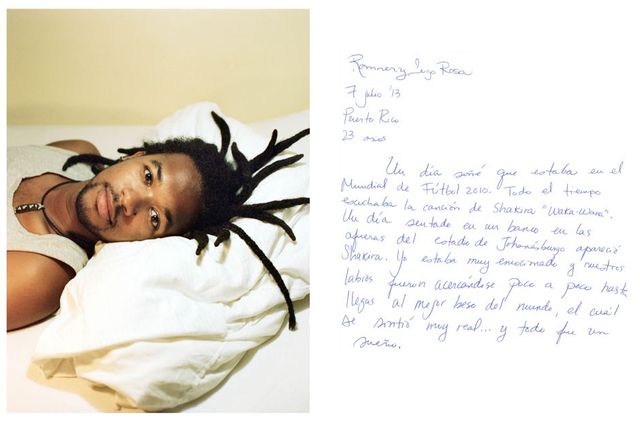 Rosa
7 julio '13
Puerto Rico
23 años
Un día soñé que estaba en el
Mundial de Fútbol 2010. Todo el tiempo
escuchaba la canción de Shakira "Waka-Waka".
Un día sentado en un banco en las
afueras del estado de Johanésburgo apareció
Shakira. Yo estaba muy emocionado y nuestros
labios fueron acercándose poco a poco hasta
llegas al mejor beso del mundo, el cuál
se sintió muy real... y todo fue un
sueño.